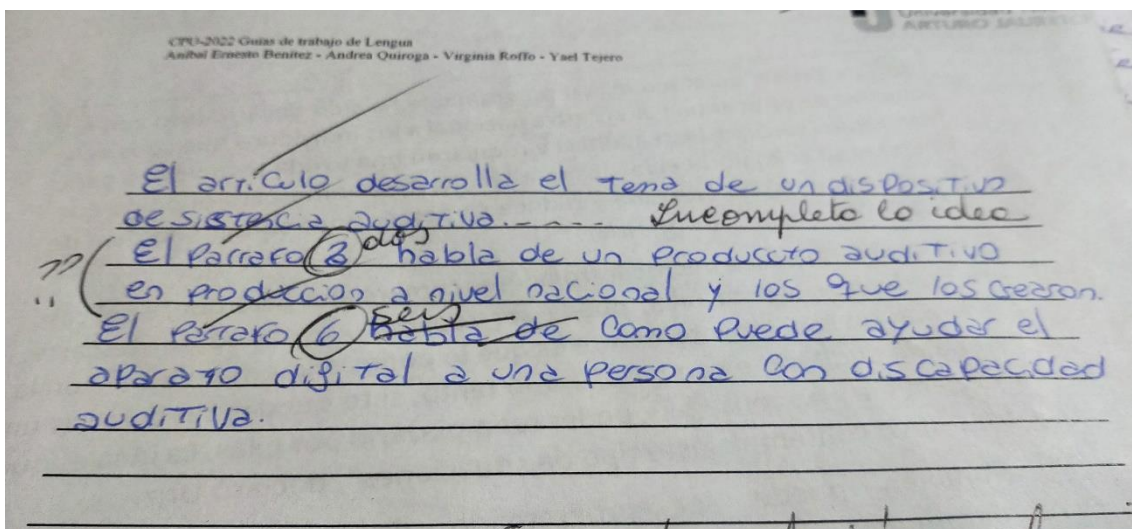 ARTURO JAURETCHE
CPU-2022 Guías de trabajo de Lengua
Aníbal Ernesto Benítez - Andrea Quiroga - Virginia Roffo - Yael Tejero
El artículo desarrolla el tema de un dispositivo
de sistencia auditiva..---- Incompleta la idea
?? ( El Párrafo 2 dos habla de un producto auditivo
en producción a nivel nacional y los que los crearon.
El Párrafo 6 seis habla de como puede ayudar el
aparato digital a una persona con discapacidad
auditiva.